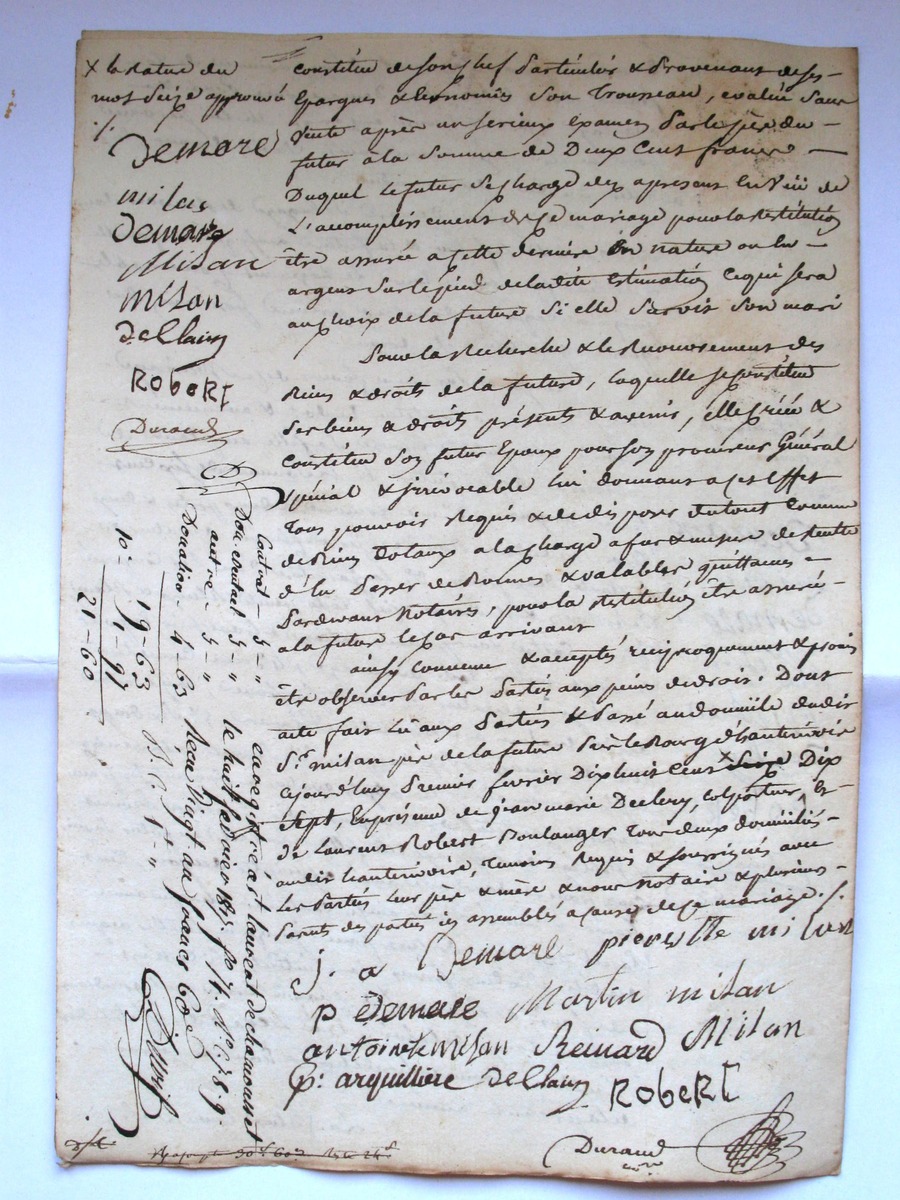 x la rature du
mot Seize approuvé
./.
Demare
milan
Demare
Milan
milan
declairy
Robert
Durand
constitue de son chef Particulier & Provenant de ses
Epargnes & Economies son Trousseau, evalué sans
vente après un serieux examen Par le père du
futur a la Somme de Deux Cent francs
Duquel le futur se charge des apresent en vüe de
L'accomplissement de ce mariage pour la restitution
être assurée a cette derniere En nature ou en
argent Sur le pied de la dite Estimation ce qui sera
au choix de la future si elle Survit Son mari
Pour la Recherche & le Recouvrement des
Biens & droits de la future, laquelle se constitue
Ses biens & droits présents & avenir, elle crée &
Constitue Son futur Epoux pour Son procureur Général
Spécial & irrévocable lui donnant a cet Effet
Tous pouvoir Requis & de dis poser du tout Comme
de Biens Dotaux a la charge a fur & mesure de Recette
d'en Passer de Bonnes & valables quittances
Pardevant Notaires, pour la restitution être assurée
a la future le cas arrivant
ainsy convenu & accepté reciproquement & promis
être observer Par les Parties aux peines de droit. Dont
acte fait Lu aux Parties & Passé au domicile du dit
Sr. milan père de la future Sur le Bourg d'hauterivoire
ajourd'huy Premier fevrier Dix huit Cent x Seize Dix
Sept, En présence de jean marie Declery, colporteur, Et
de Laurent Robert Boulanger Tous deux domiciliés
au dit hauterivoire, Temoins Requis & soussignés avec
Les Parties leur père & mère & nous notaire & plusieurs
Parents des parties icy assemblés a cause de ce mariage ./.
j. a Demare pierrette milan
p demare Martin milan
antoine milan Reinard Milan
P: arquillière declairy
Robert
Durand
nre
Contrat - 5 - "
Don éventuel 5 - "
autre - 5 - "
Donation - 4 - 63
19 - 63
10e 1 - 97
21 - 60
enregistré à st laurent de chamousset
le huit fevrier 1817. fo 74. Ro. C. 7. 8. 9.
Reçu Vingt un francs 60 c